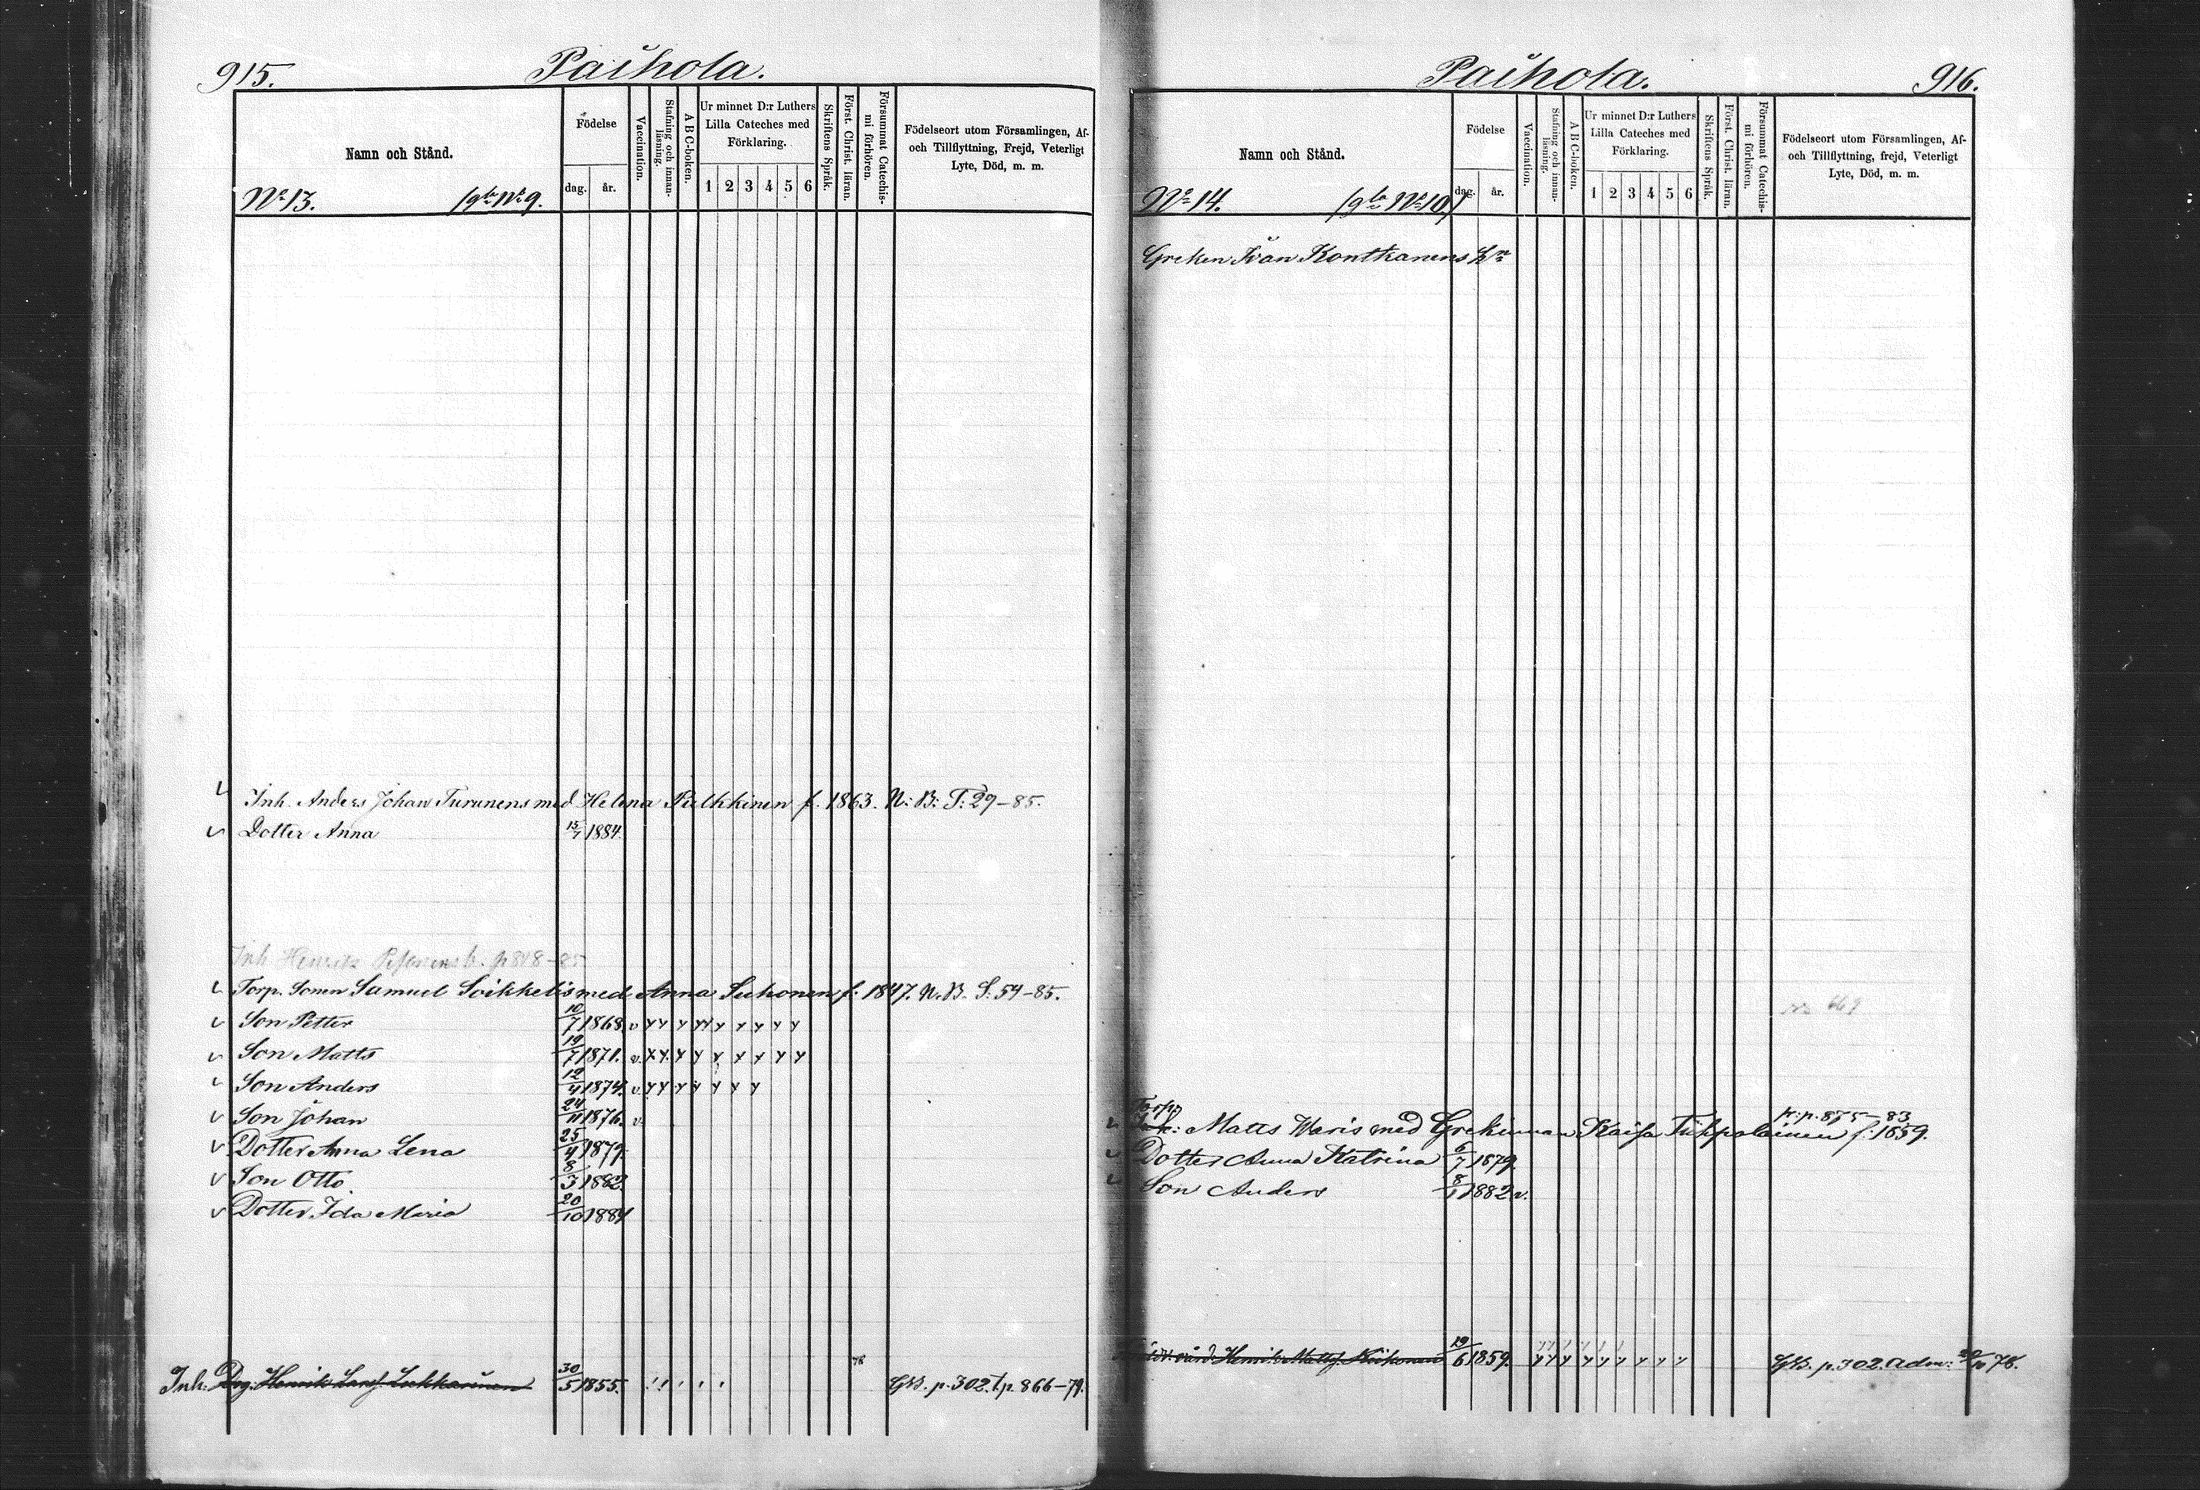 915.
Paihola.
Namn och Stånd.
Födelse
dag. år.
Vaccination.
Stafning och innan-läsning.
A B C-boken.
Ur minnet D:r Luthers
Lilla Cateches med
Förklaring.
1 2 3 4 5 6
Skriftens Språk.
Först. Christ. läran.
Försummat Catechis-
mi förhören.
Födelseort utom Församlingen, Af-
och Tillflyttning, Frejd, Veterligt
Lyte, Död, m. m.
No 13. No 9.
Inh. Anders Johan Turunens med Helena Pulkkinen f. 1863. N: B: T: 29-85.
Dotter Anna 15/7 1884.
Inh Henrik p 818-85
Torp. Sonen Samuel Soikkelis med Anna Suhonen f. 1847. N. B. S: 54-85.
Son Petter 10/7 1868. v
Son Matts 19/7 1871. v.
Son Anders 12/4 1874. v
Son Johan 24/11 1876. v
Dotter Anna Lena 25/4 1879.
Son Otto. 8/3 1882.
Dotter Ida Maria 20/10 1884
Inh: Drg. Henrik Larsf. Lukkarinen 30/5 1855. 78 p. 302. p. 866-79.
Paihola.
916.
Namn och Stånd.
Födelse
dag. år.
Vaccination.
Stafning och innan-läsning.
A B C-boken.
Ur minnet D:r Luthers
Lilla Cateches med
Förklaring.
1 2 3 4 5 6
Skriftens Språk.
Först. Christ. läran.
Försummat Catechis-
mi förhören.
Födelseort utom Församlingen, Af-
och Tillflyttning, frejd, Veterligt
Lyte, Död, m. m.
No 14. No 10
Greken Ivan Kontkanens
669
Torp. fr: p. 875-83
Matts Waris med Grekinnan Kaisa Tuppolainen f: 1859.
Dotter Anna Katrina 6/7 1879.
Son Anders 8/1 1882 v.
Henrik Mattsf. 19/6 1859. p. 302. Adm: 78.